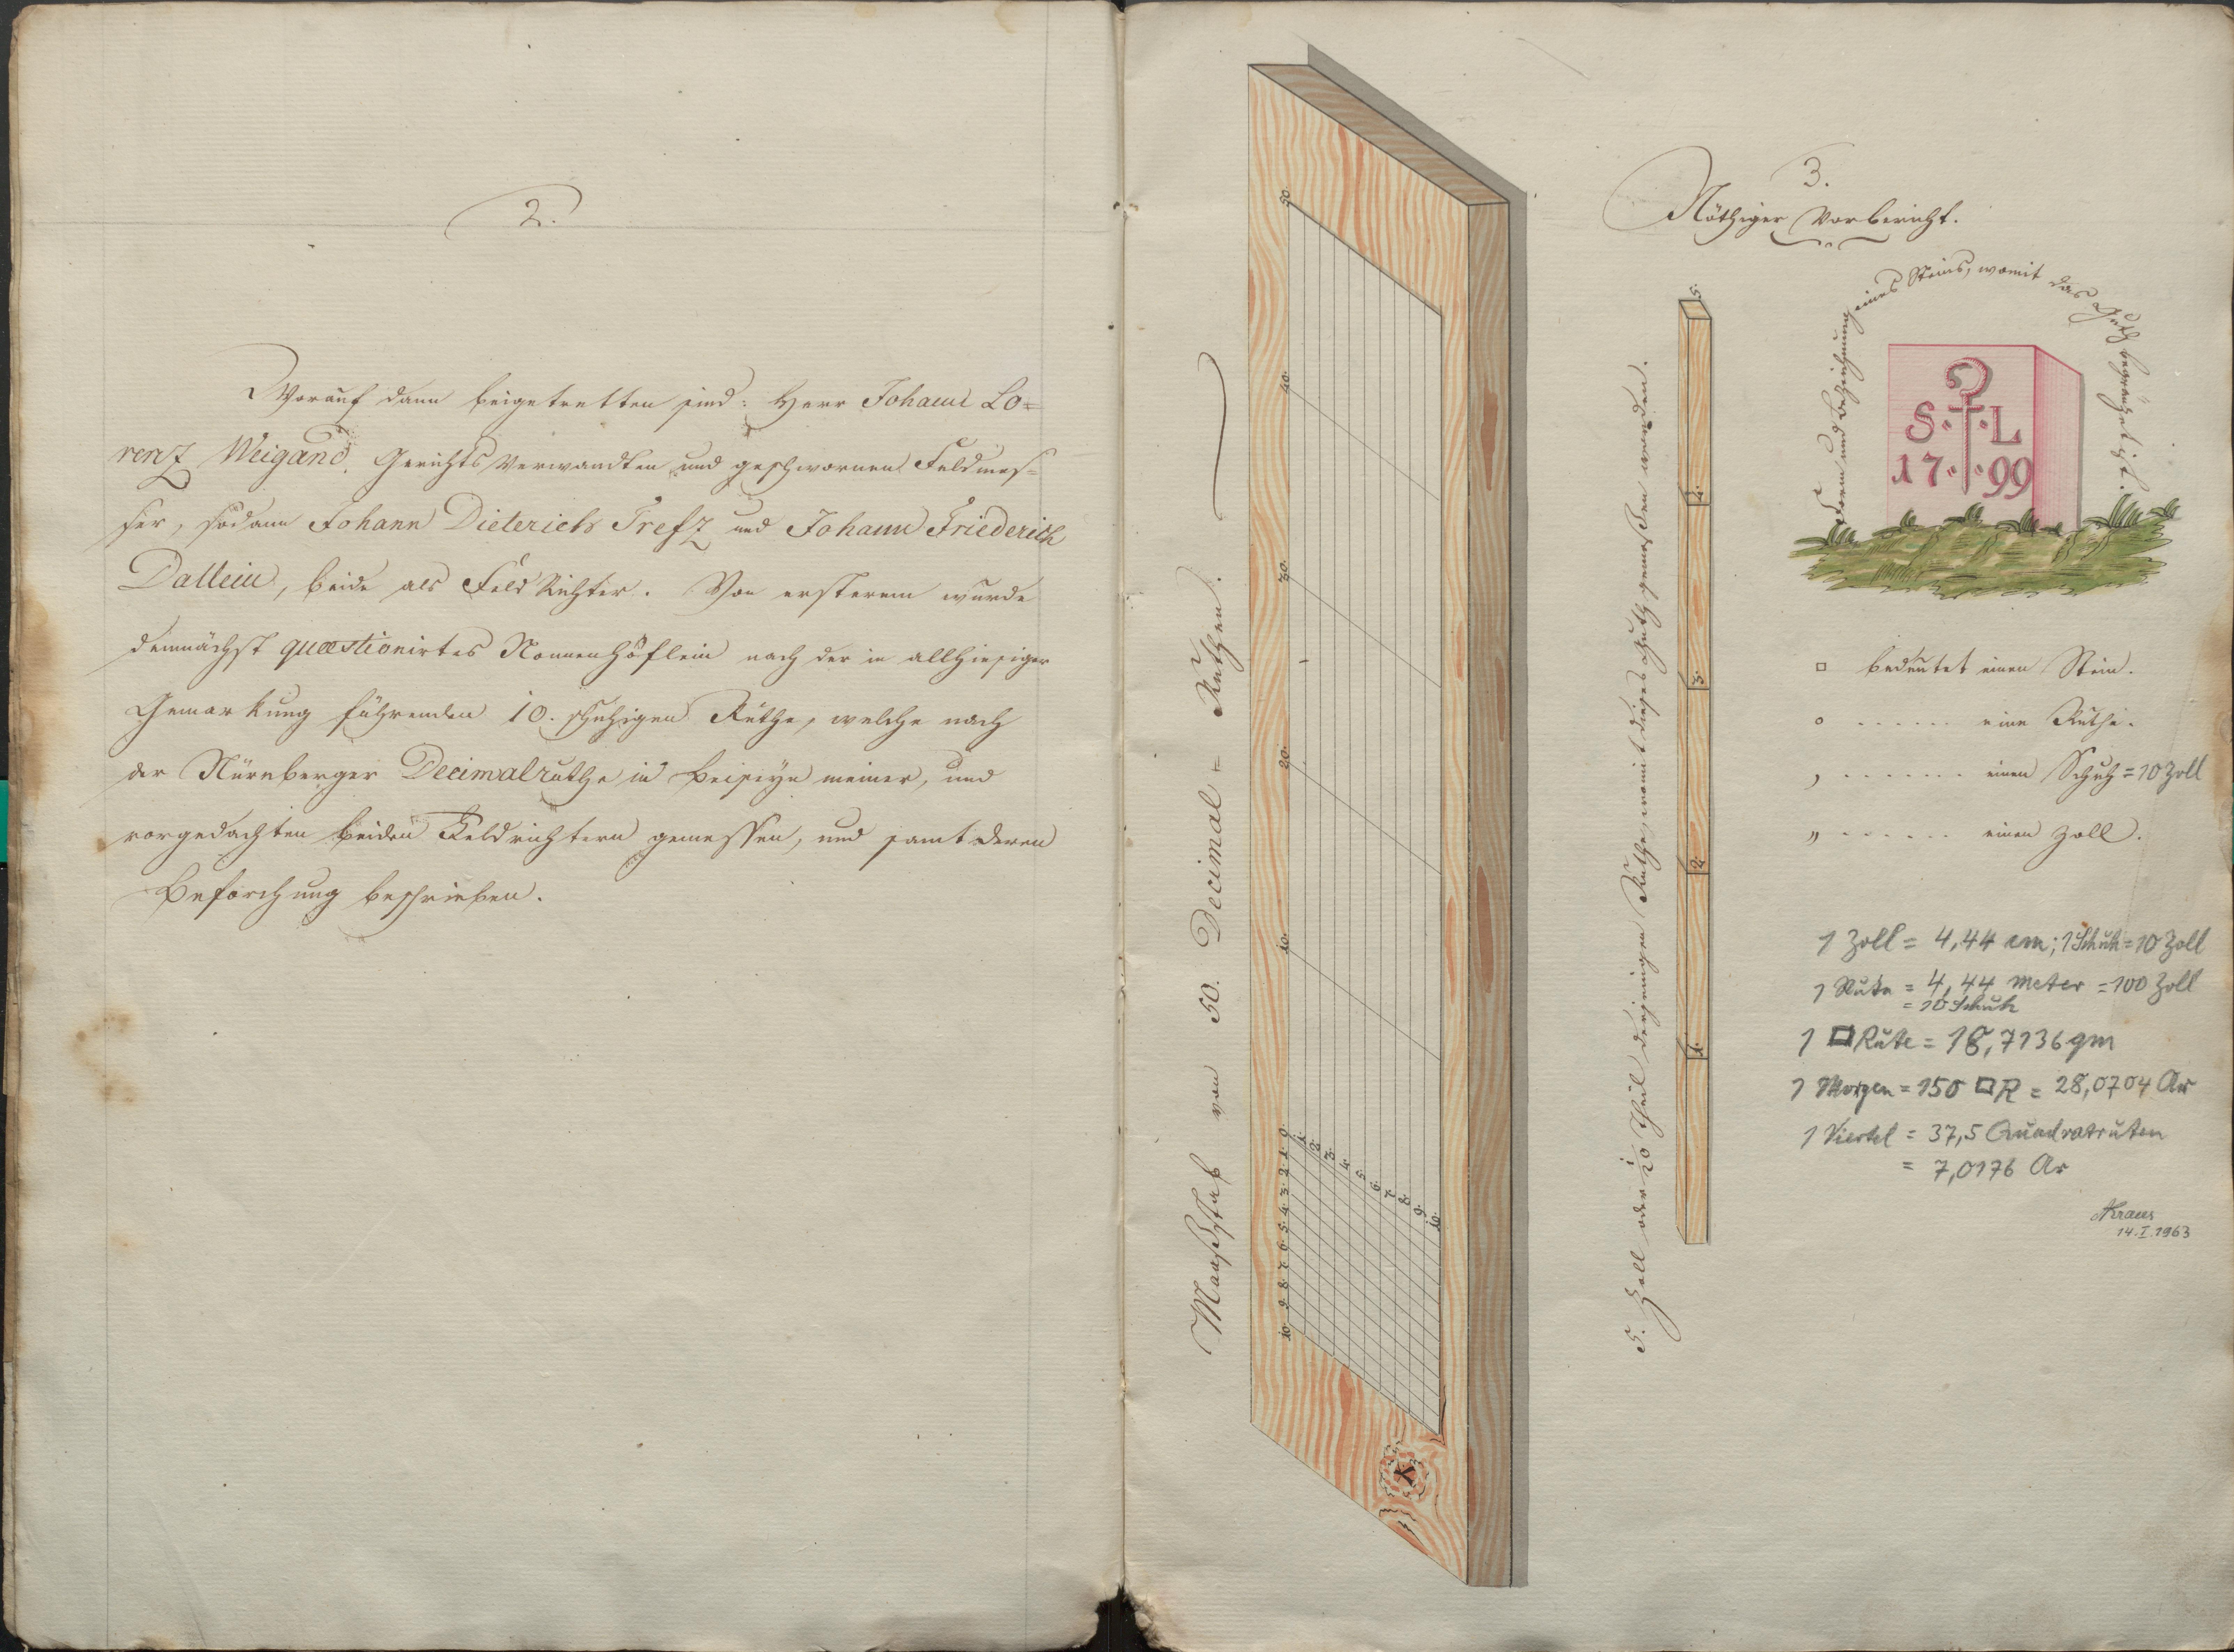 2.
Worauf dann beigetretten sind: Herr Johann Lo=
renz Weigand, Gerichts Verwandten und geschwornen Feldmes=
ser, sodann Johann Dieterich Trefz und Johann Friederich
Dallein, beide als Feld Richter. Von ersterem wurde
demnächst quæstionirtes Nonnenhöflein nach der in allhiesiger
Gemarkung führenden 10. schuhigen Ruthe, welche nach
der Nürnberger Decimalruthe in Beiseyn meiner, und
vorgedachten beiden Feldrichtern gemessen, und samt deren
Beforchung beschrieben.
Maaßstab von 50. Decimal = Ruthen.
50.
40.
30.
20.
10.
0. 1. 2. 3. 4. 5. 6. 7. 8. 9. 10.
1. 2. 3. 4. 5. 6. 7. 8. 9. 10.
3.
Nöthiger Vorbericht.
5. Zoll oder 1/20 Theil derjenigen Ruthe, womit dieses Guth gemessen worden.
5.
4.
3.
2.
1.
Form und Bezeichnung eines Steins, womit das Guth begränzet ist.
S. L
17 99
□ bedeutet einen Stein.
o ...... eine Ruthe.
, ....... einen Schuh = 10 Zoll
,, ...... einen Zoll.
1 Zoll = 4,44 cm; 1 Schuh = 10 Zoll
1 Rute = 4,44 meter = 100 Zoll
= 10 Schuh
1 □ Rute = 18,7136 qm
1 Morgen = 150 □ R = 28,0704 Ar
1 Viertel = 37,5 Quadratruten
= 7,0176 Ar
Kraus
14.I.1963